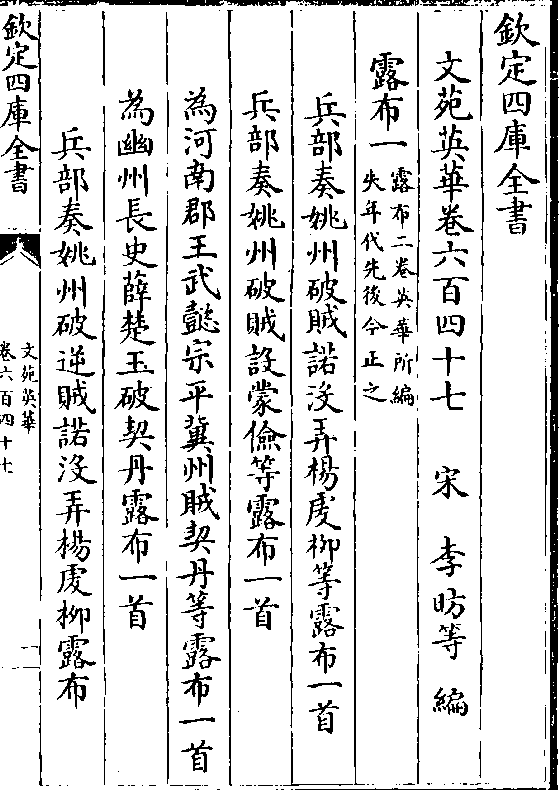 欽定四庫全書
文苑英華卷六百四十七 宋 李昉等 編
露布一 露布二卷英華所編
失年代先後今正之
兵部奏姚州破賊諾沒弄楊虔柳等露布一首
兵部奏姚州破賊設蒙儉等露布一首
為河南郡王武懿宗平冀州賊契丹等露布一首
為幽州長史薛楚玉破契丹露布一首
兵部奏姚州破逆賊諾沒弄楊虔柳露布
欽定四庫全書
文苑英華
卷六百四十七
一